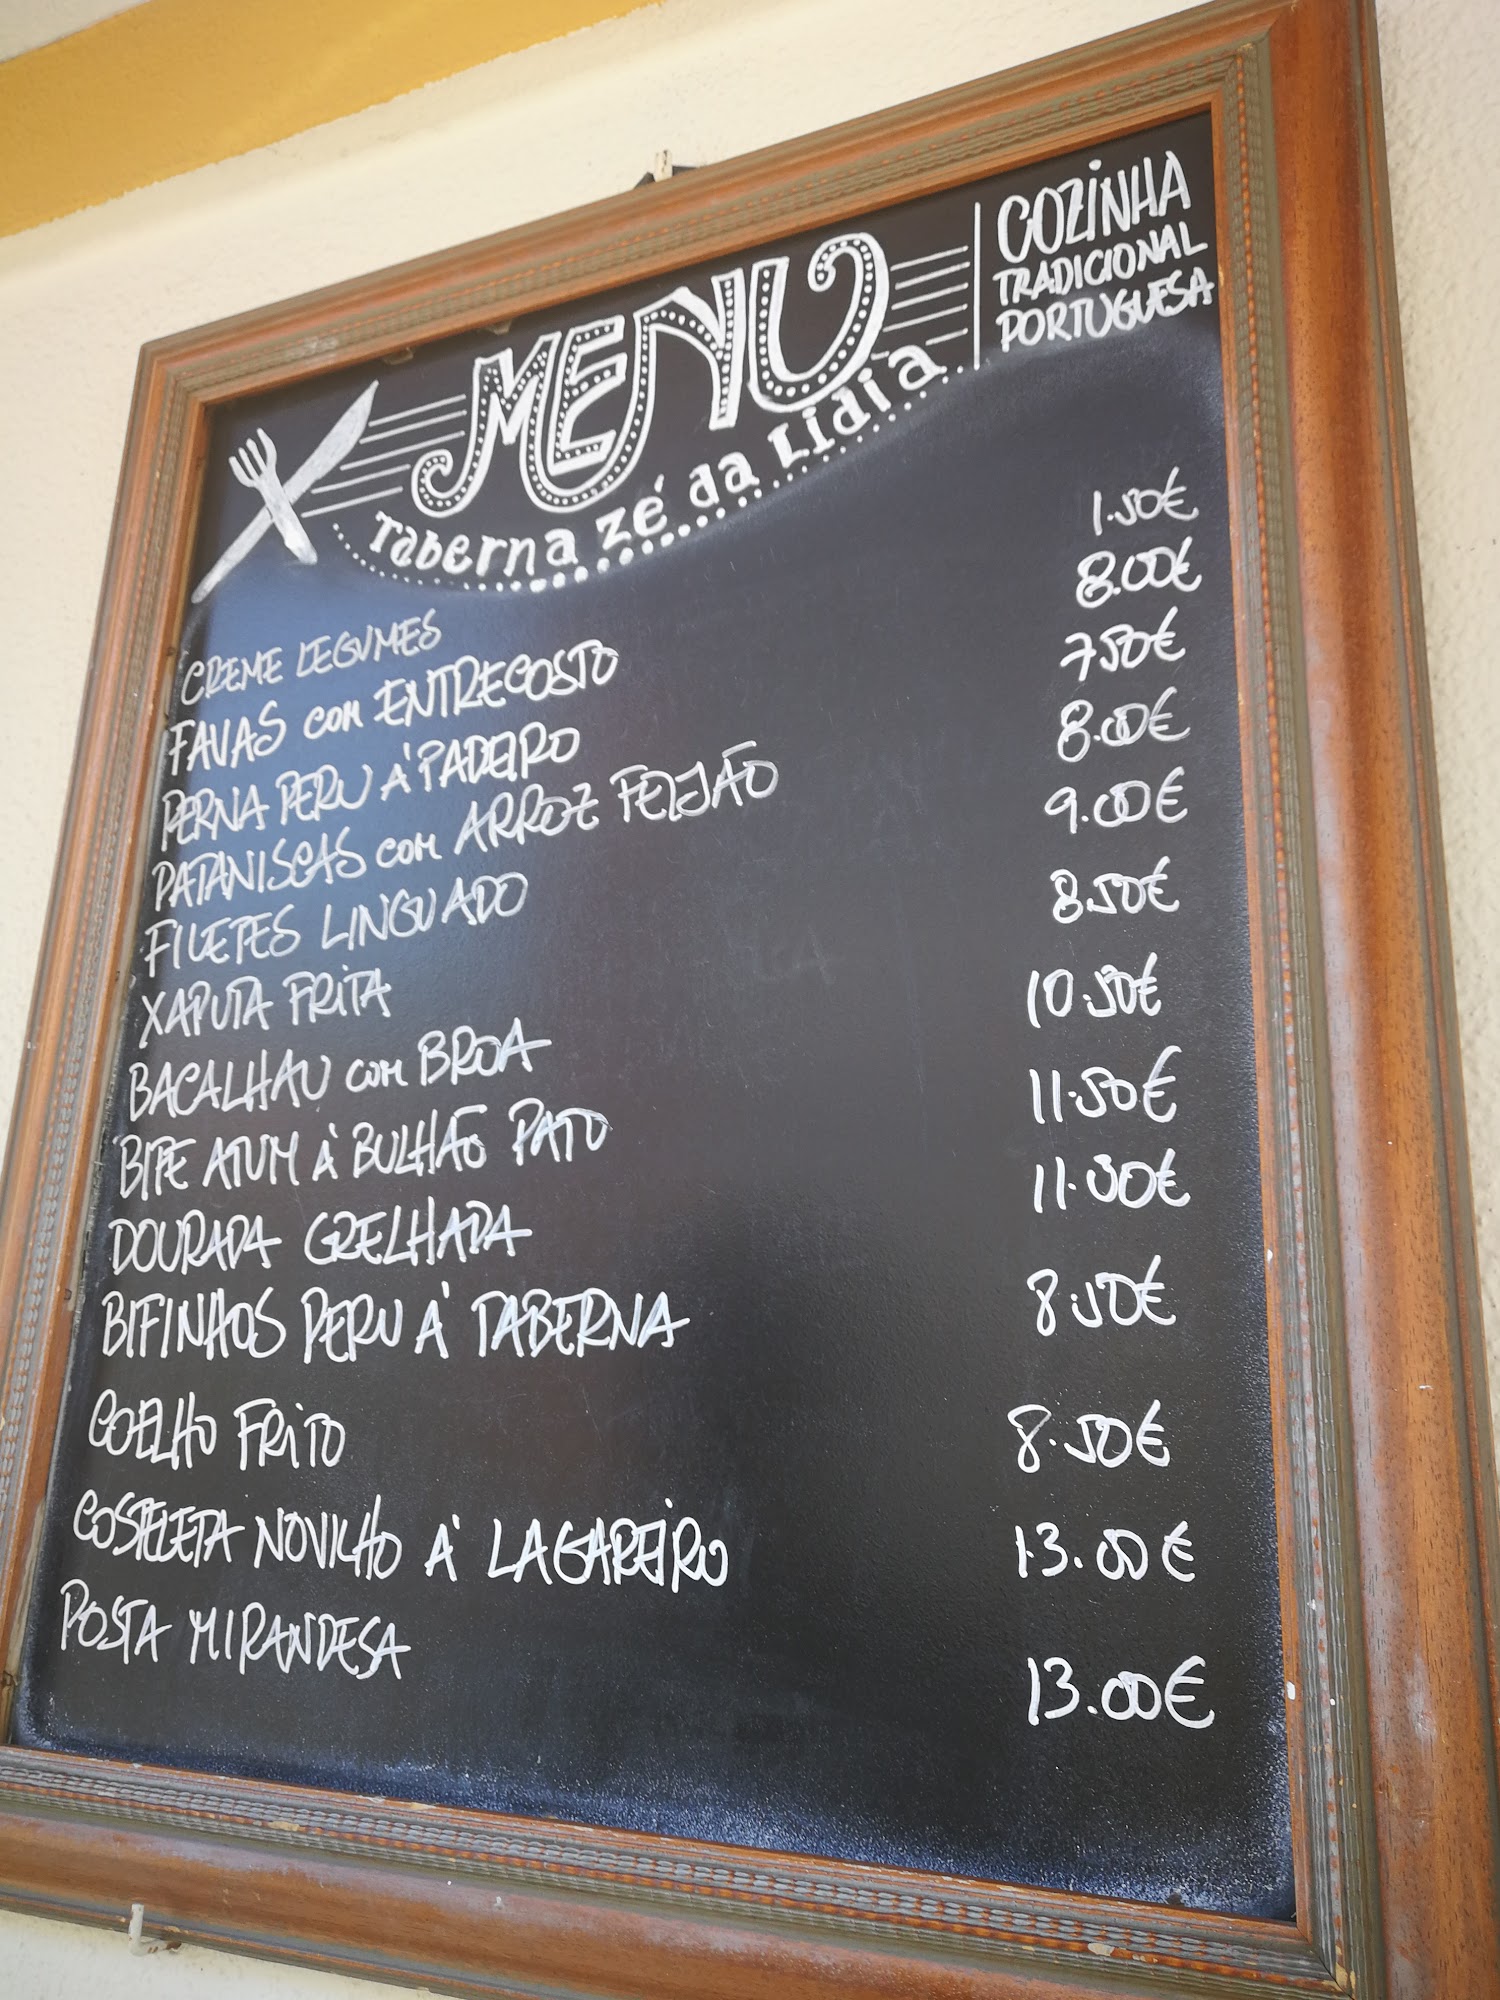 MENU
Taberna zé da Lidia
COZINHA
TRADICIONAL
PORTUGUESA
CREME LEGUMES 1.50€
FAVAS com ENTRECOSTO 8.00€
PERNA PERU À PADEIRO 7.50€
PATANISCAS com ARROZ FEIJÃO 8.00€
FILETES LINGUADO 9.00€
XAPUTA FRITA 8.50€
BACALHAU com BROA 10.50€
BIFE ATUM À BULHÃO PATO 11.50€
DOURADA GRELHADA 11.50€
BIFINHOS PERU À TABERNA 8.50€
COELHO FRITO 8.50€
COSTELETA NOVILHO À LAGAREIRO 13.00€
POSTA MIRANDESA 13.00€